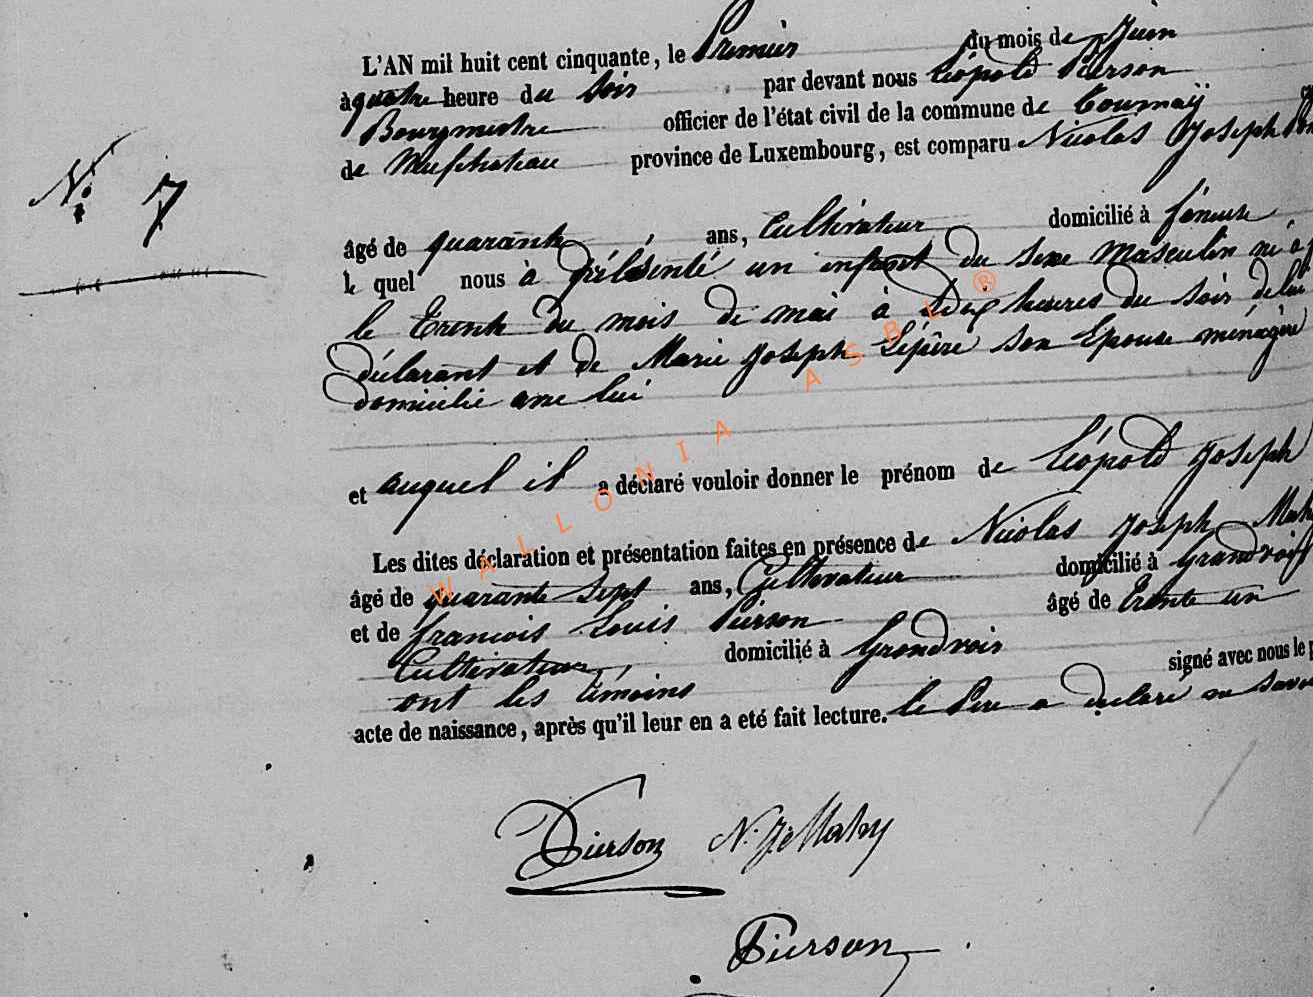 L'AN mil huit cent cinquante, le Premier du mois de Juin
à quatre heure du soir par devant nous Léopold Pierson
Bourgmestre officier de l'état civil de la commune de Tournaÿ
de Neufchateau province de Luxembourg, est comparu Nicolas Joseph
N° 7
âgé de quarante ans, Cultivateur domicilié à
le quel nous à présenté un enfant du sexe masculin né à
le Trente du mois de mai à deux heures du soir de lui
déclarant et de Marie Joseph Lépère son Epouse ménagère
domicilié avec lui
et auquel il a déclaré vouloir donner le prénom de Léopold Joseph
Les dites déclaration et présentation faites en présence de Nicolas Joseph
âgé de quarante sept ans, Cultivateur domicilié à Grandvoir
et de francois Louis Pierson âgé de Trente un
Cultivateur, domicilié à Grandvoir
ont les témoins signé avec nous le
acte de naissance, après qu'il leur en a eté fait lecture. le Pere a declaré ne
Pierson N. Je Mahy
Pierson
WALLONIA ASBL ®